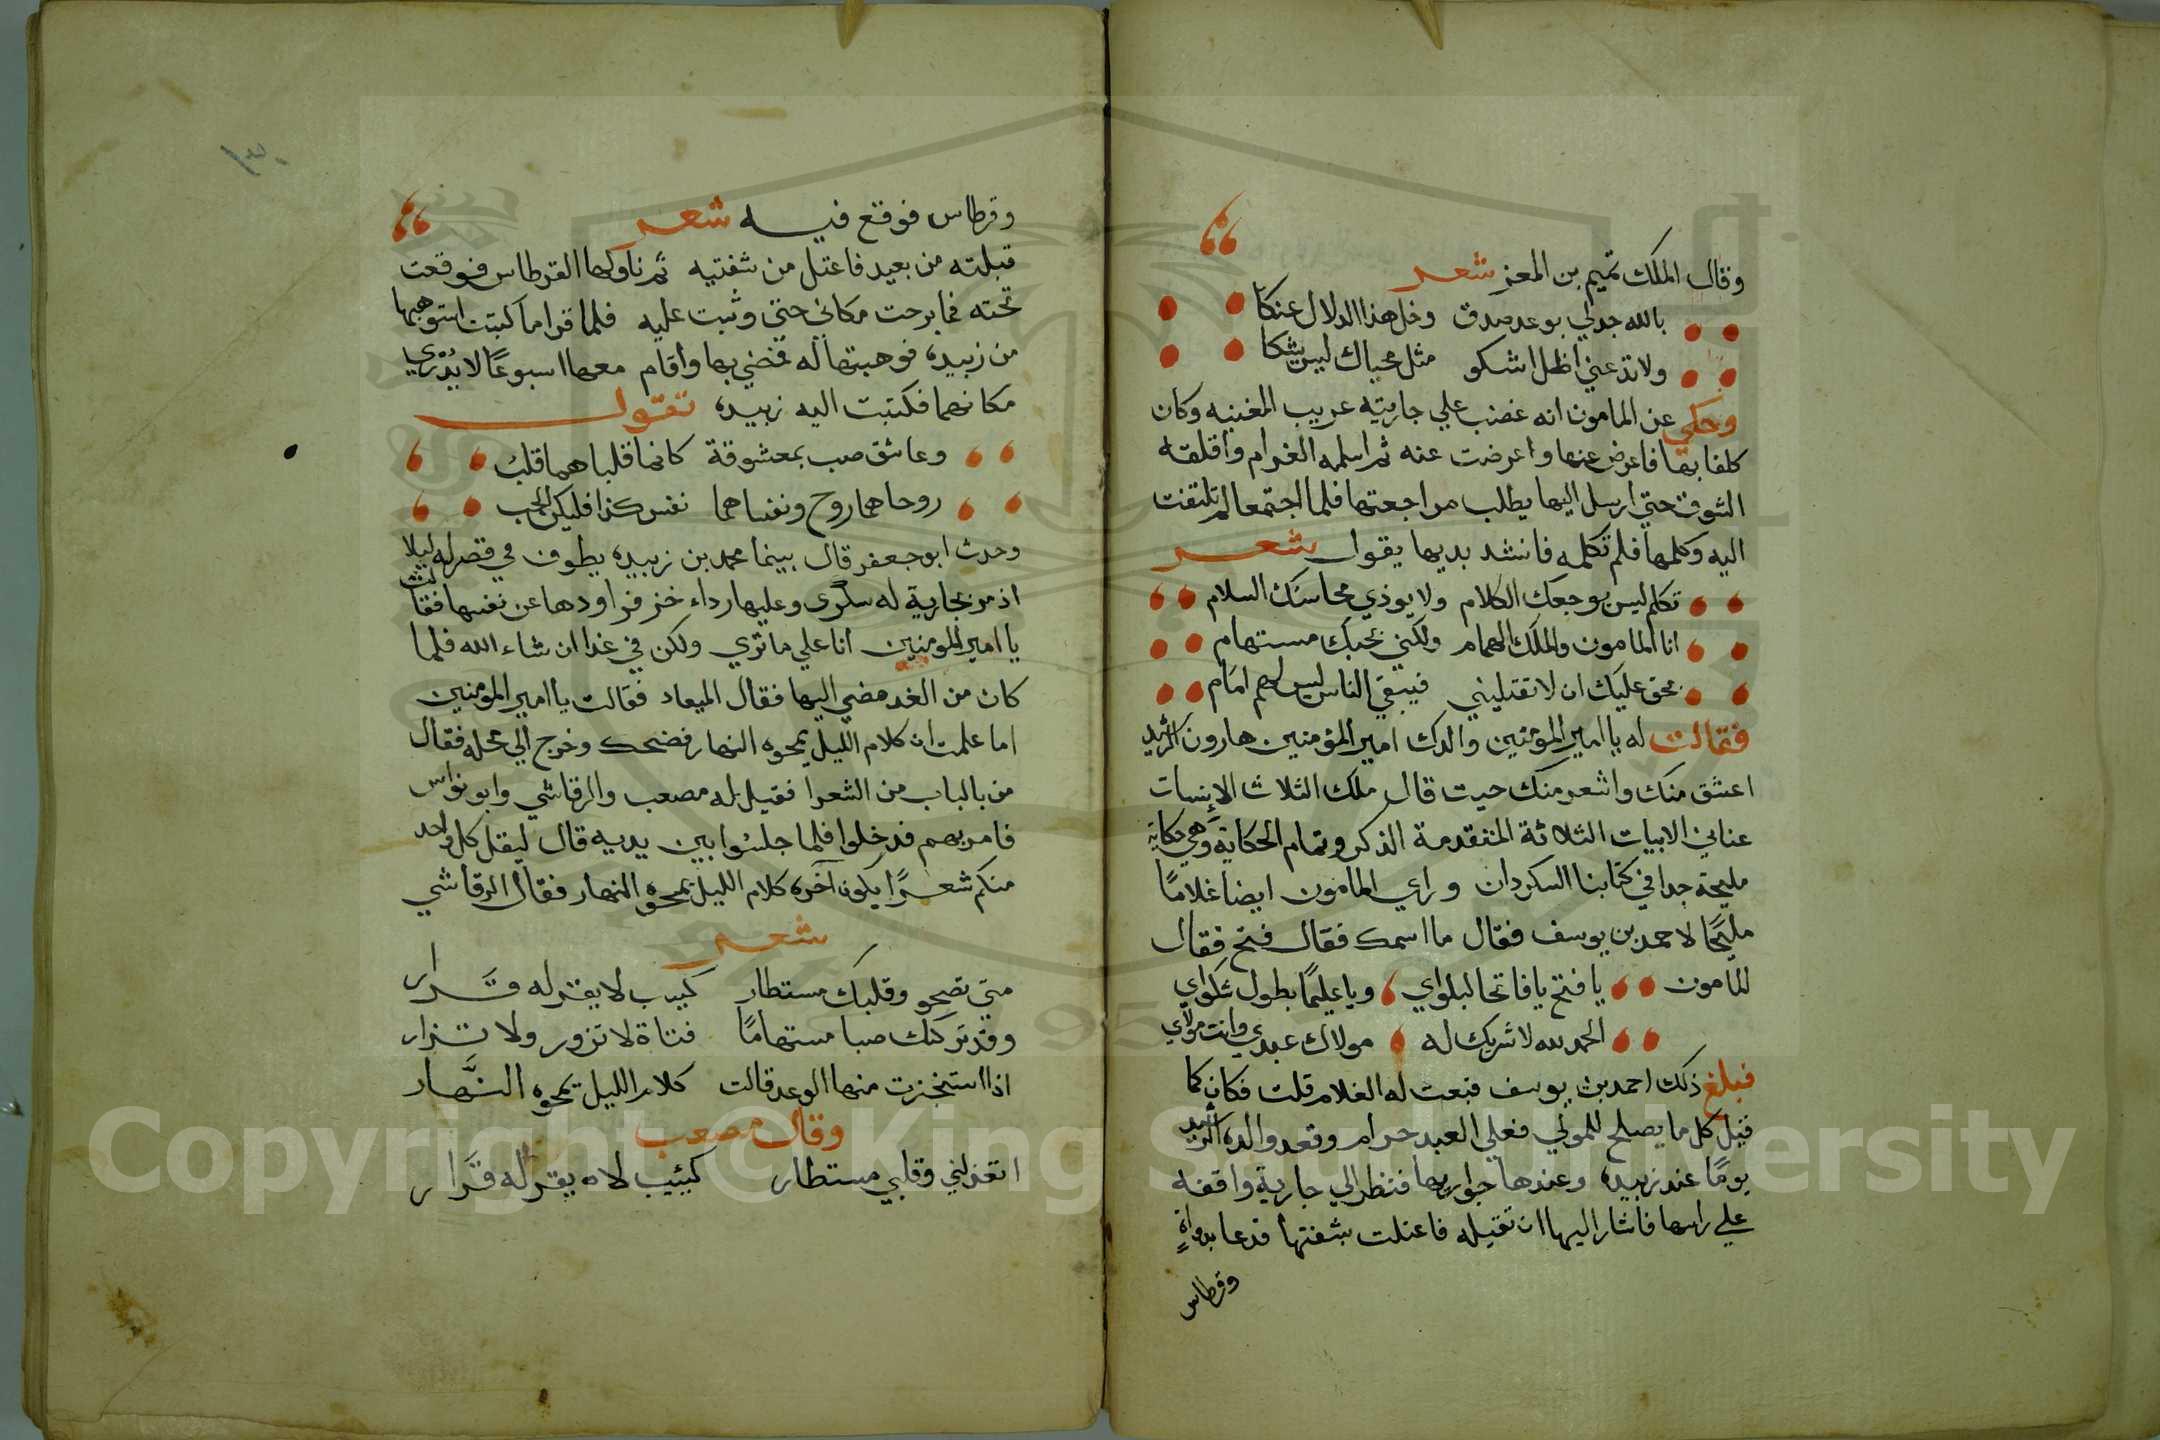 وقال الملك تميم بن المعز شعر
بالله جدلي بوعد صدق وخل هذا الدلال عنكا
ولا تدعني أظل اشكو مثل محياك ليس يشكا
وحكي عن المامون انه غضب علي جاريته عريب المغنيه وكان
كلفا بها فاعرض عنها واعرضت عنه ثم اسلمه الغرام واقلقه
الشوق حتي ارسل اليها يطلب مراجعتها فلما اجتمعا لم تلتفت
اليه وكلمها فلم تكلمه فانشد بديها يقول شعر
تكلم ليس يوجعك الكلام ولا يوذي محاسنك السلام
انا المامون والملك الهمام ولكني بحبك مستهام
بحق عليك ان لا تقتليني فيبقي الناس ليس لهم امام
فقالت له يا امير المومنين والدك امير المؤمنين هارون الرشيد
اعشق منك واشعر منك حيث قال ملك الثلاث الانسات
عناني الابيات الثلاثة المتقدمة الذكر وتمام الحكاية وهي حكاية
مليحة جدا في كتابنا السكردان وراي المامون ايضا غلامًا
مليحًا لاحمد بن يوسف فقال ما اسمك فقال فتح فقال
المامون يا فتح يا فاتحا لبلواي ويا عليمًا بطول شكواي
الحمد لله لا شريك له مولاك عبدي وانت مولاي
فبلغ ذلك احمد بن يوسف فبعث له الغلام قلت فكان كما
قيل كل ما يصلح للمولي فعلي العبد حرام وقعد والده الرشيد
يومًا عند زبيده وعندها جواريها فنظر الي جارية واقفه
علي راسها فاشار اليها ان تقبله فاعتلت بشفتها فدعا بدواةٍ
وقرطاس
وقرطاس فوقع فيه شعر
قبلته من بعيد فاعتل من شفتيه ثم ناولها القرطاس فوقعت
تحته فما برحت مكاني حتي وثبت عليه فلما قرا ما كتبت استوهبها
من زبيده فوهبتها له فمضي بها واقام معها اسبوعًا لا يُدْري
مكانهما فكتبت اليه زبيده تقول
وعاشق صب بمعشوقة كانما قلباهما قلب
روحاهما روح ونفساهما نفس كذا فليكن الحب
وحدث ابو جعفر قال بينما محمد بن زبيده يطوف في قصر له ليلا
اذ مر بجارية له سكرى وعليها رداء خز فراودها عن نفسها فقالت
يا امير المومنين انا علي ما تري ولكن في غد ان شاء الله فلما
كان من الغد مضي اليها فقال الميعاد فقالت يا امير المومنين
اما علمت ان كلام الليل يمحوه النهار فضحك وخرج الي محله فقال
من بالباب من الشعرا فقيل له مصعب والرقاشي وابو نواس
فامر بهم فدخلوا فلما جلسوا بين يديه قال ليقل كل واحد
منكم شعرًا يكون آخره كلام الليل يمحوه النهار فقال الرقاشي
شعر
متي تصحو وقلبك مستطار كييب لا يقر له قَرار
وقد تركتك صبا مستهامًا فتاة لا تزور ولا تزار
اذا استنجزت منها الوعد قالت كلام الليل يمحوه النَّهار
وقال مصعب
اتعذلني وقلبي مستطار كييب لاه يقر له قَرَار
Copyright © King Saud University